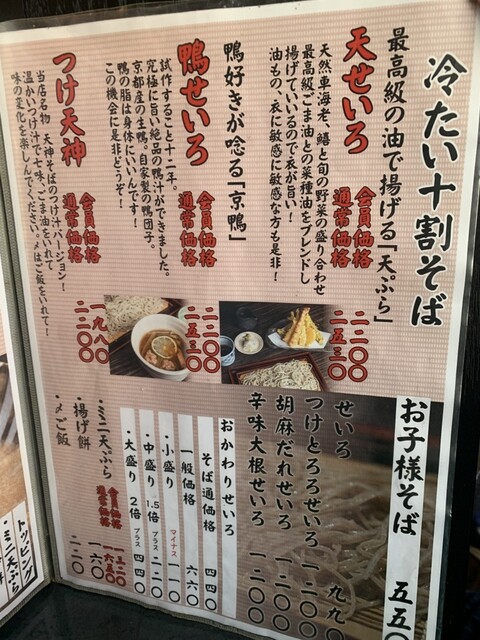 冷たい十割そば
最高級の油で揚げる「天ぷら」
天せいろ
会員価格 二二〇〇
通常価格 二五三〇
天然車海老、鱚と旬の野菜の盛り合わせ
最高級ごま油との菜種油をブレンドし
揚げているので衣が旨い！
油もの、衣に敏感な方も是非！
鴨好きが唸る「京鴨」
鴨せいろ
会員価格 二二〇〇
通常価格 二五三〇
試作すること十二年。
究極に旨い絶品の鴨汁ができました。
京都産の生鴨。自家製の鴨団子。
鴨の脂は身体にいいんです！
この機会に是非どうぞ！
つけ天神
会員価格 一九八〇
通常価格 二二〇〇
当店名物 天神そばのつけ汁バージョン！
温かいつけ汁で七味、ごま油をいれて
味の変化を楽しんでください。〆はご飯をいれて！
お子様そば 五五〇
せいろ 九九
つけとろろせいろ 一二〇〇
胡麻だれせいろ 一二〇〇
辛味大根せいろ 一二〇〇
おかわりせいろ
そば通価格 四四〇
一般価格 六六〇
・小盛り マイナス 一一〇
・中盛り 1.5倍 プラス 二二〇
・大盛り 2倍 プラス 四四〇
・ミニ天ぷら
会員価格
通常価格
・揚げ餅 一六〇
・〆ご飯 二二〇
トッピング
・ミニ天ぷら